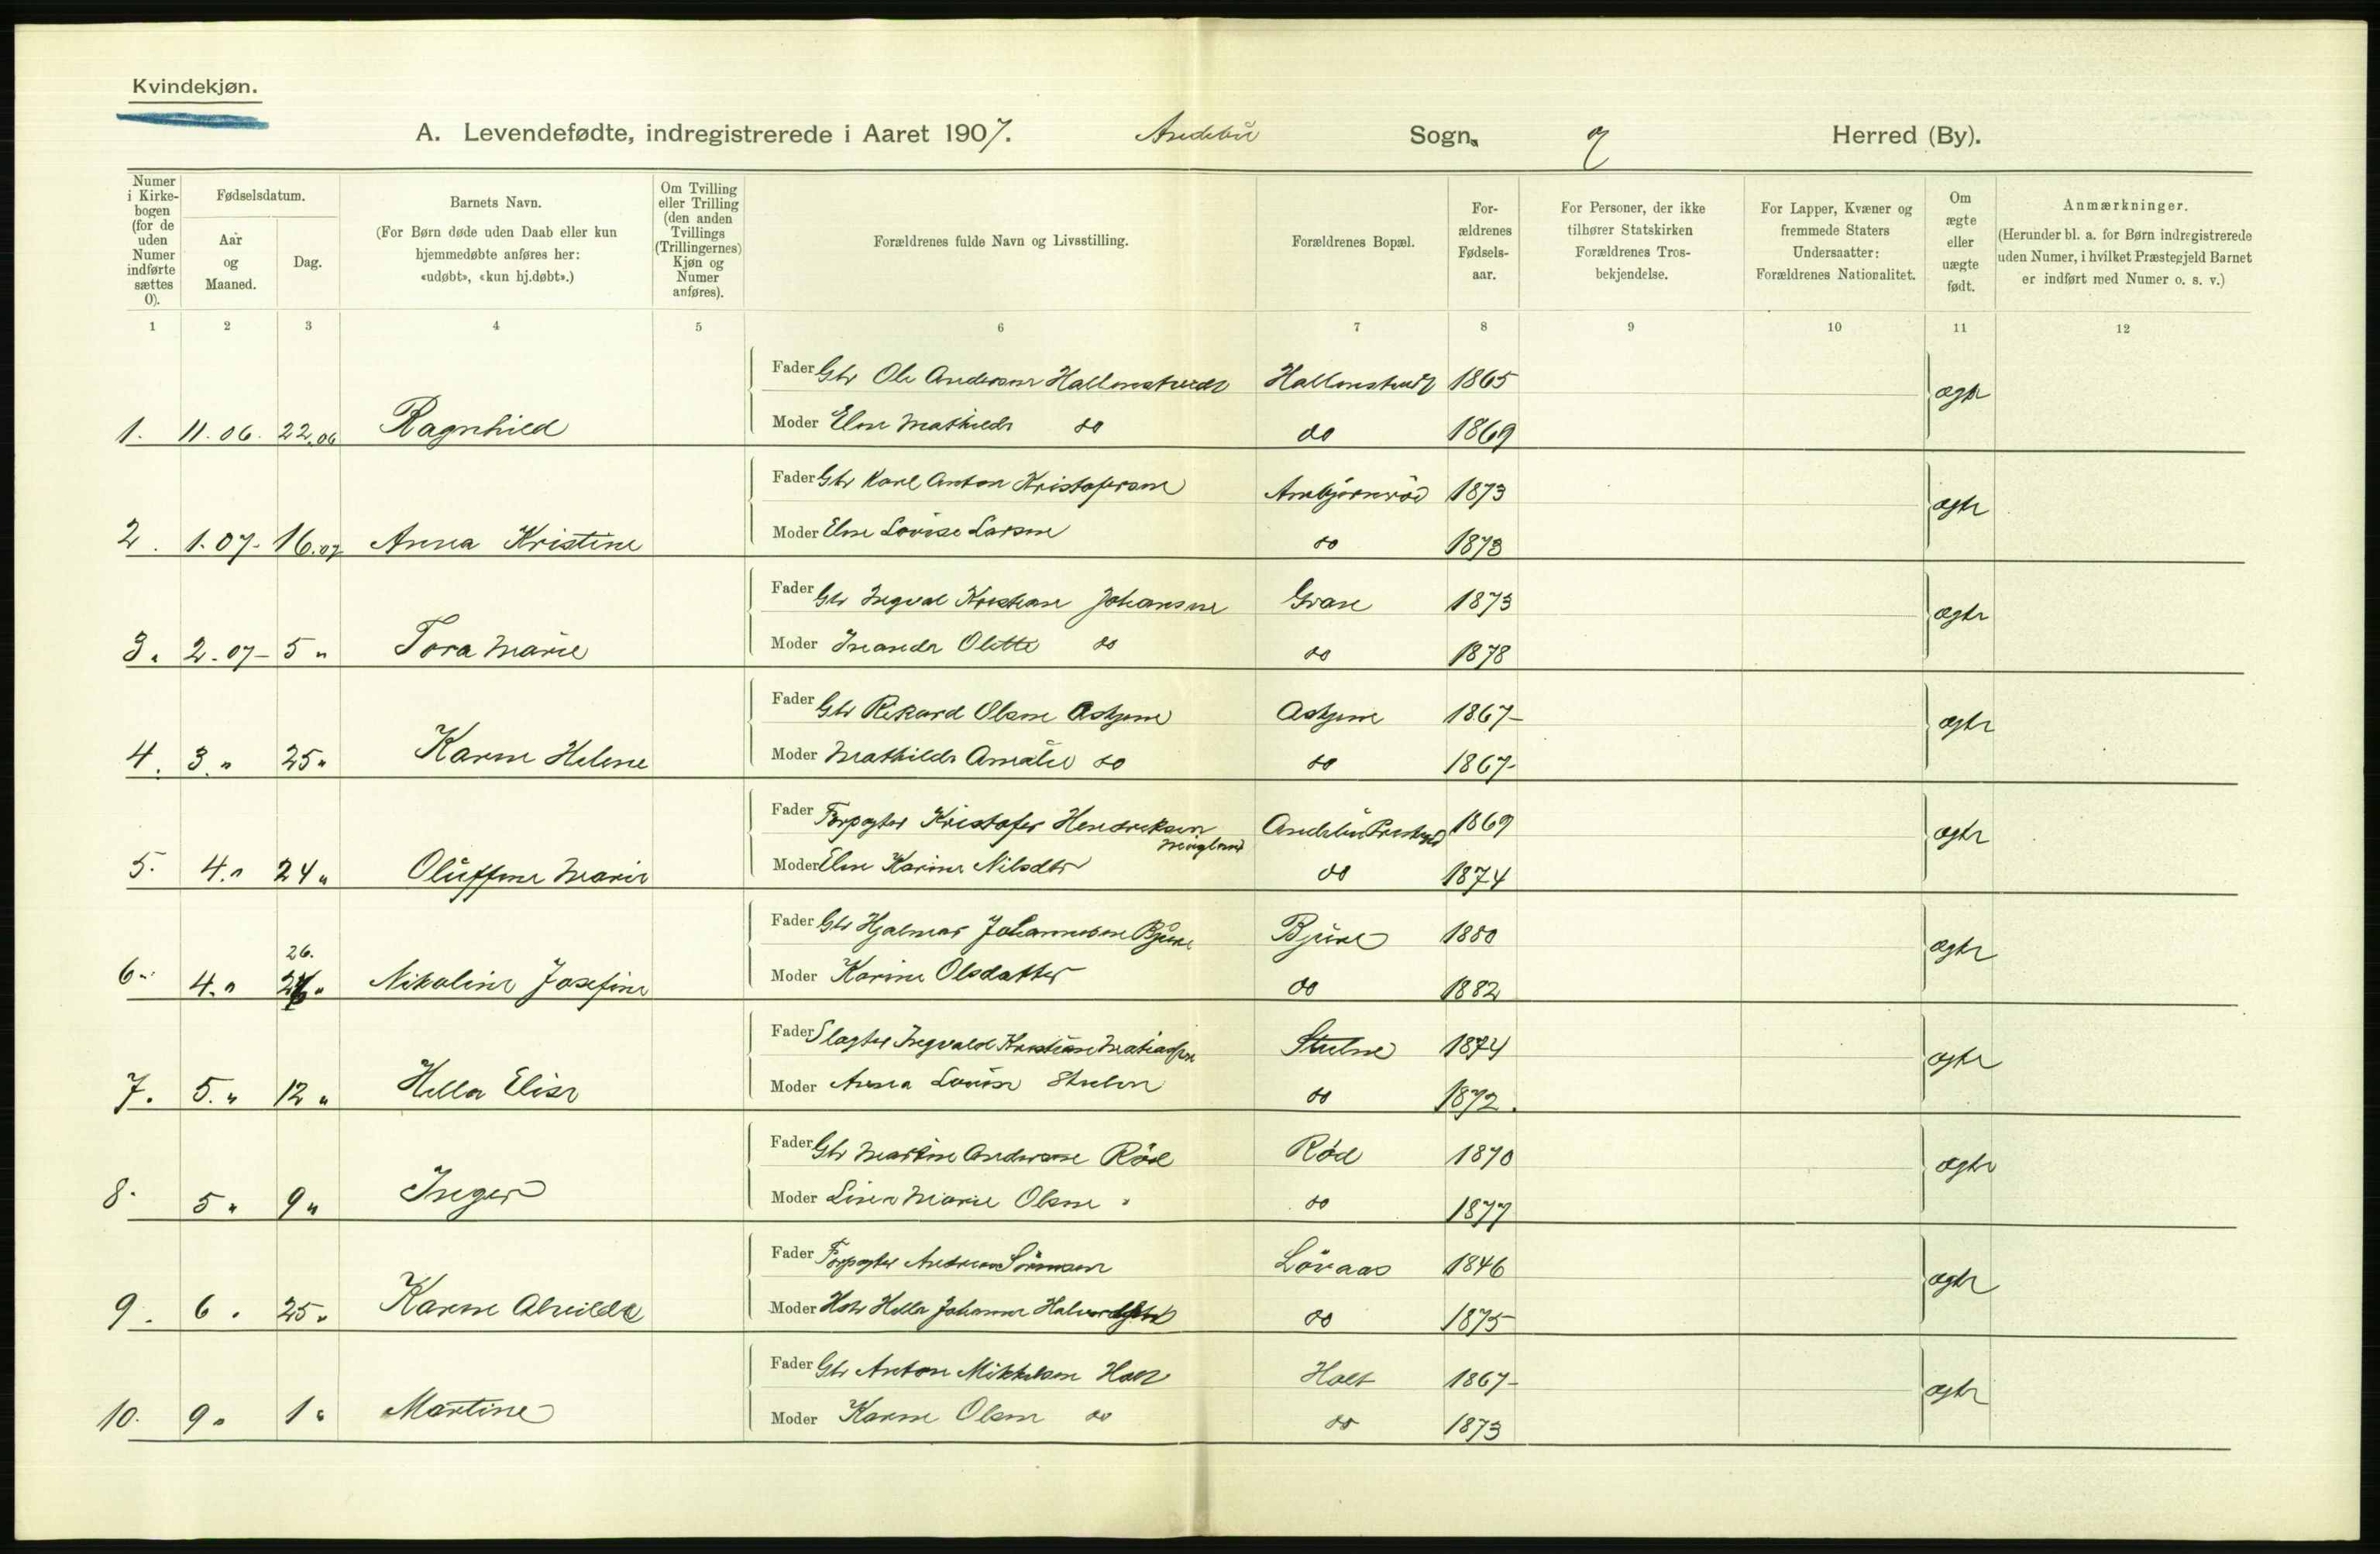 Kvindekjøn.
A. Levendefødte, indregistrerede i Aaret 1907. Andebu Sogn. og Herred (By).
Numer i Kirkebogen (for de uden Numer indførte sættes 0).
Fødselsdatum.
Aar og Maaned.
Dag.
Barnets Navn.
(For Børn døde uden Daab eller kun hjemmedøbte anføres her: «udøbt», «kun hj.døbt».)
Om Tvilling eller Trilling (den anden Tvillings (Trillingernes) Kjøn og Numer anføres).
Forældrenes fulde Navn og Livsstilling.
Forældrenes Bopæl.
Forældrenes Fødselsaar.
For Personer, der ikke tilhører Statskirken Forældrenes Trosbekjendelse.
For Lapper, Kvæner og fremmede Staters Undersaatter: Forældrenes Nationalitet.
Om ægte eller uægte født.
Anmærkninger.
(Herunder bl. a. for Børn indregistrerede uden Numer, i hvilket Præstegjeld Barnet er indført med Numer o. s. v.)
1 2 3 4 5 6 7 8 9 10 11 12
Fader Gbr Ole Andersen Hallenstvedt Hallenstvedt 1865
1. 11.06. 22.06 Ragnhild Moder Elen Mathilde do do 1869 ægte
Fader Gbr Karl Anton Kristofersen Anbjørnrød 1873
2. 1.07- 16.07 Anna Kristine Moder Elen Lovise Larsen do 1873 ægte
Fader Gbr Ingval Kristian Johansen Gran 1873
3. 2.07- 5 " Tora Marie Moder Inanda Olette do do 1878 ægte
Fader Gbr Rikard Olsen Askjem Askjem 1867-
4. 3. " 25 " Karen Helene Moder Mathilde Amalie do do 1867- ægte
Fader Forpagter Kristofer Hendriksen Andebu Prestegd 1869
5. 4. " 24 " Oluffine Marie Moder Elen Karine Nilsdtr do 1874 ægte
Fader Gbr Hjalmar Johannesen Bjune Bjune 1880
6. 4. " 26. " Nikoline Josefine Moder Karine Olsdatter do 1882 ægte
Fader Slagter Ingvald Kristian Matiassen Stulen 1874
7. 5. " 12 " Hella Elise Moder Anna Lovise Stulen do 1872. ægte
Fader Gbr Martin Andersen Rød Rød 1870
8. 5 " 9 " Inger Moder Lina Marie Olsen " do 1877 ægte
Fader Forpagter Andreas Sørensen Løvaas 1846
9. 6 " 25 " Karen Alvilde Moder Hella Johanne do 1875 ægte
Fader Gbr Anton Mikkelsen Holt Holt 1867-
10. 9 " 1 " Martine Moder Karen Olsen do do 1873 ægte